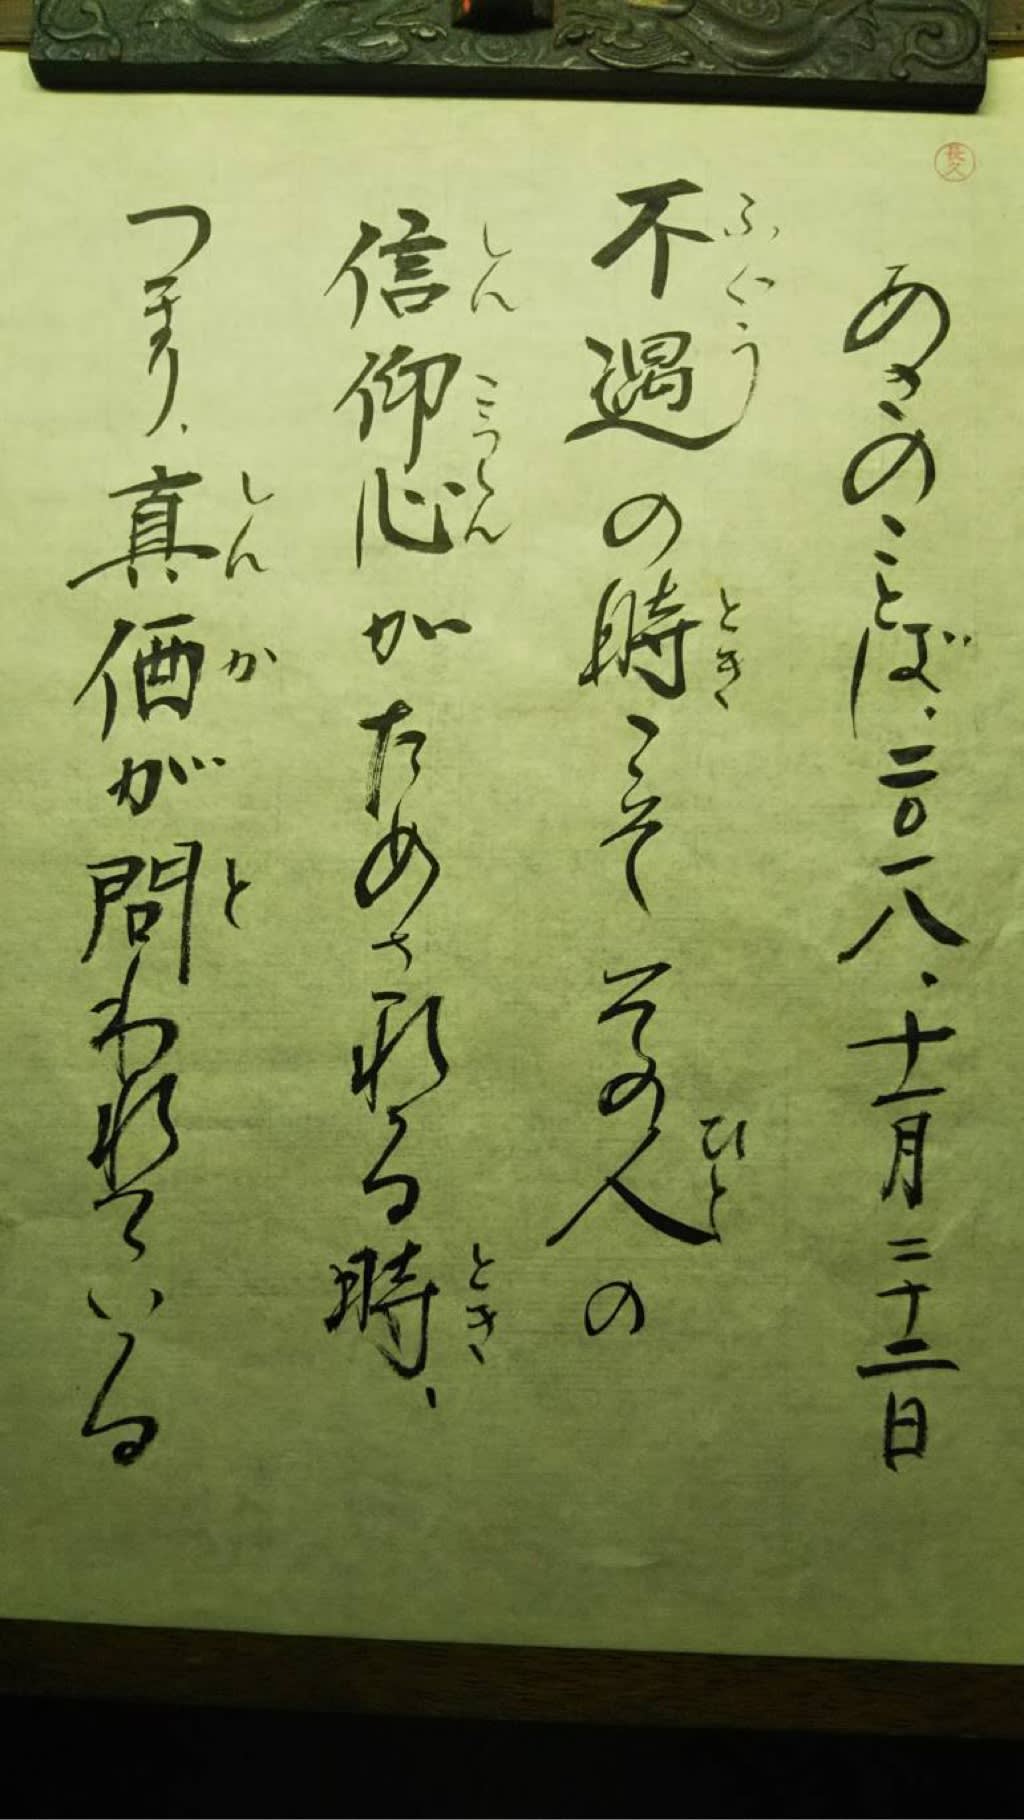 あさのことば、二〇一八、十一月二十二日
不遇の時こそその人の
ふぐう
とき
ひと
信仰心がためされる時、
しん
こうしん
とき
つまり、真価が問われている
しん
か
と
長久